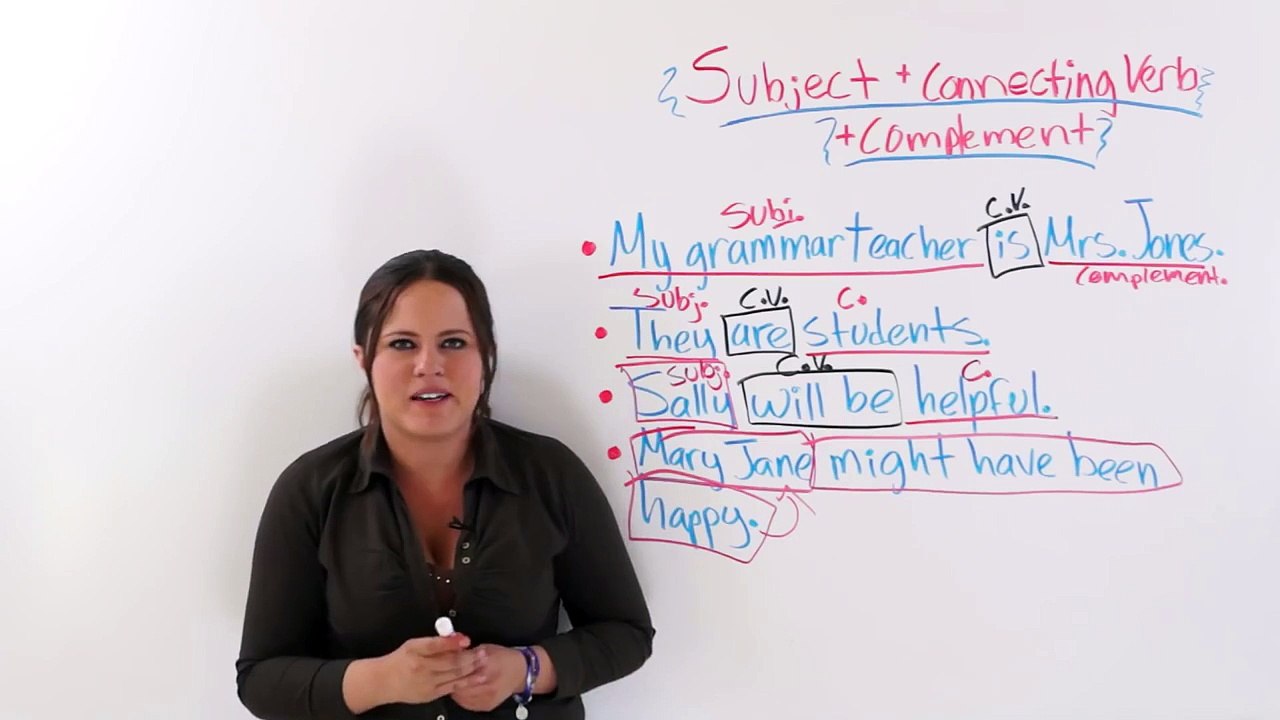 {Subject + Connecting Verb}
{+ Complement}
Subj. C.V.
• My grammar teacher is Mrs. Jones.
complement.
Subj. C.V. C.
• They are students.
Subj. C.V. C.
• Sally will be helpful.
• Mary Jane might have been
happy.